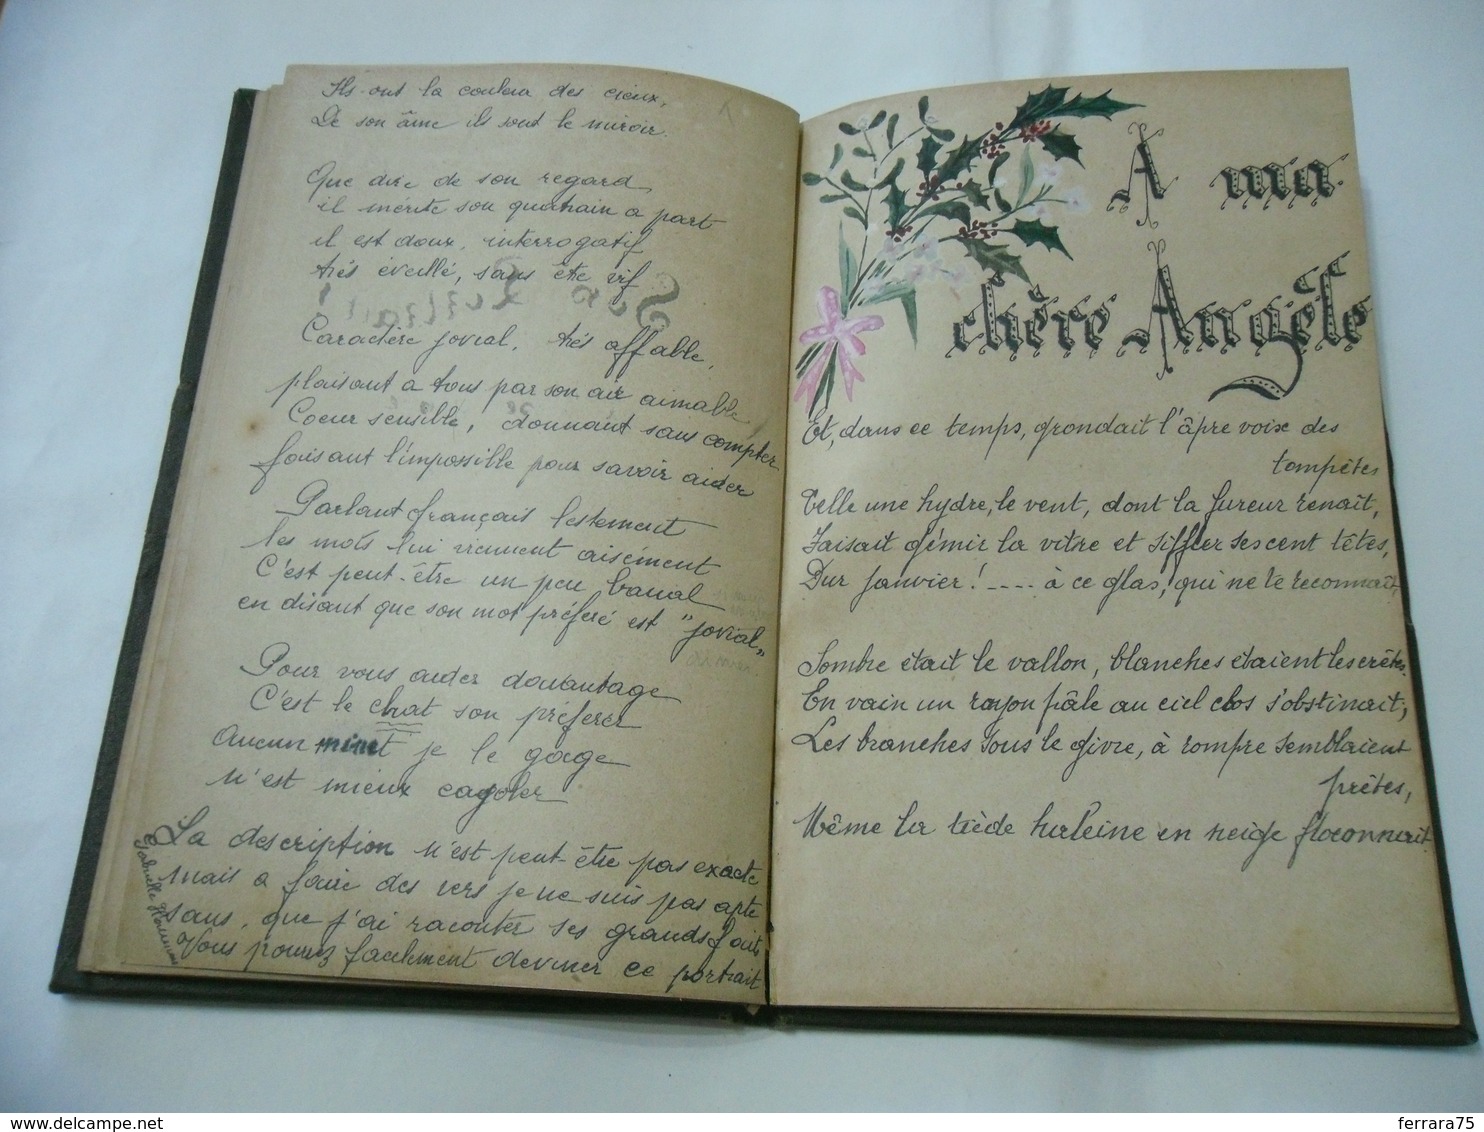 Ils ont la couleur des cieux,
De son âme ils sont le miroir.
Que dire de son regard,
il mérite son quatrain a part
il est doux, interrogatif
très éveillé, sans être vif
Caractère jovial, très affable,
plaisant a tous par son air aimable
Coeur sensible, donnant sans compter
faisant l'impossible pour savoir aider
Parlant français lestement
les mots lui viennent aisément
C'est peut-être un peu banal
en disant que son mot préféré est "jovial"
Pour vous aider davantage
C'est le chat son préférer
Aucun minet je le gage
N'est mieux cagoler
La description n'est peut-être pas exacte
mais a faire des vers je ne suis pas apte
sans, que j'ai raconter ses grands faits
Vous pourrez facilement deviner ce portrait
Gabrielle
A ma
chère Angèle
Et, dans ce temps, grondait l'âpre voix des
tempêtes
Telle une hydre, le vent, dont la fureur renaît,
Faisait gémir la vitre et siffler ses cent têtes,
Dur Janvier! ---- à ce glas, qui ne te reconnaît,
Sombre était le vallon, blanches étaient les crêtes.
En vain un rayon pâle au ciel clos s'obstinait;
Les branches sous le givre, à rompre semblaient
prêtes,
Même la tiède haleine en neige floconnait
ferrara75